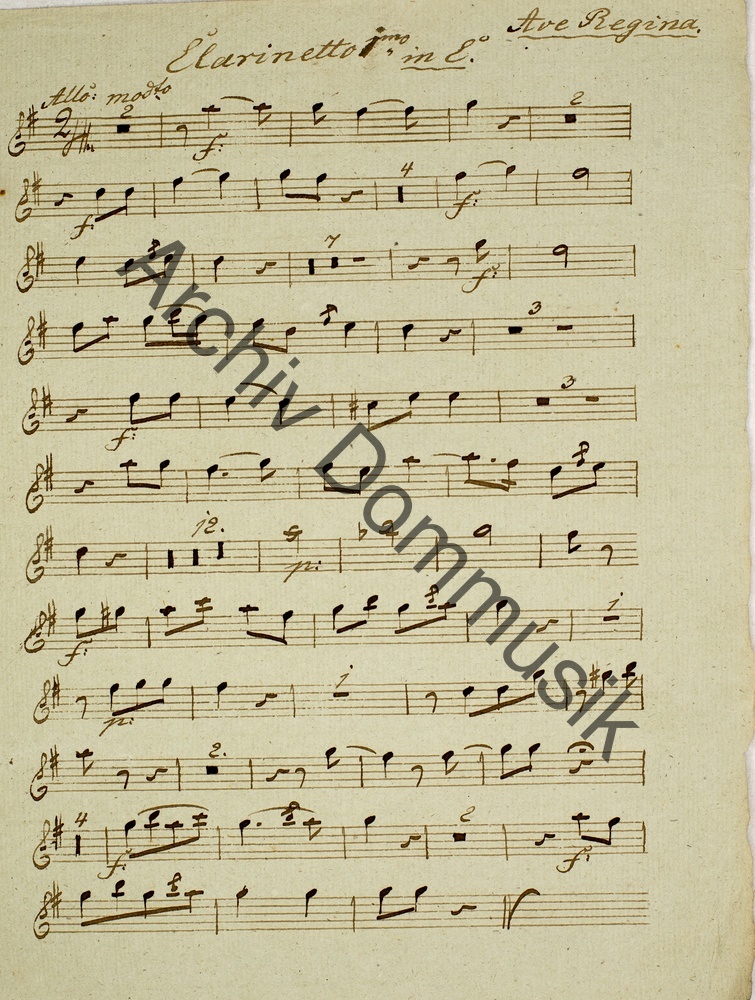 Ave Regina.
Clarinetto 1mo in C.
Allo: modto
2 2
f:
4
f: f:
7
f:
3
3
f:
12.
p:
f: 1
1
p:
2.
4 2
f: f:
Archiv Dommusik